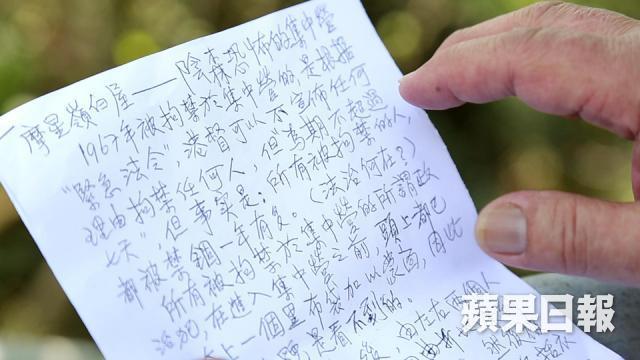 摩星嶺白屋——陰森恐怖的集中營
1967年被拘禁於集中營的是根据
“緊急法令”,港督可以不宣佈任何
理由拘禁任何人,但為期不超過
七天”,但事实是:所有被拘禁的人,
都被禁錮一年有多。(法治何在?)
所有被拘禁於集中營的所謂政
治犯,在進入集中營之前,頭上都已
上一個黑布袋加以蒙面,因此
是看不到的。
由在右兩個人
蘋果日報